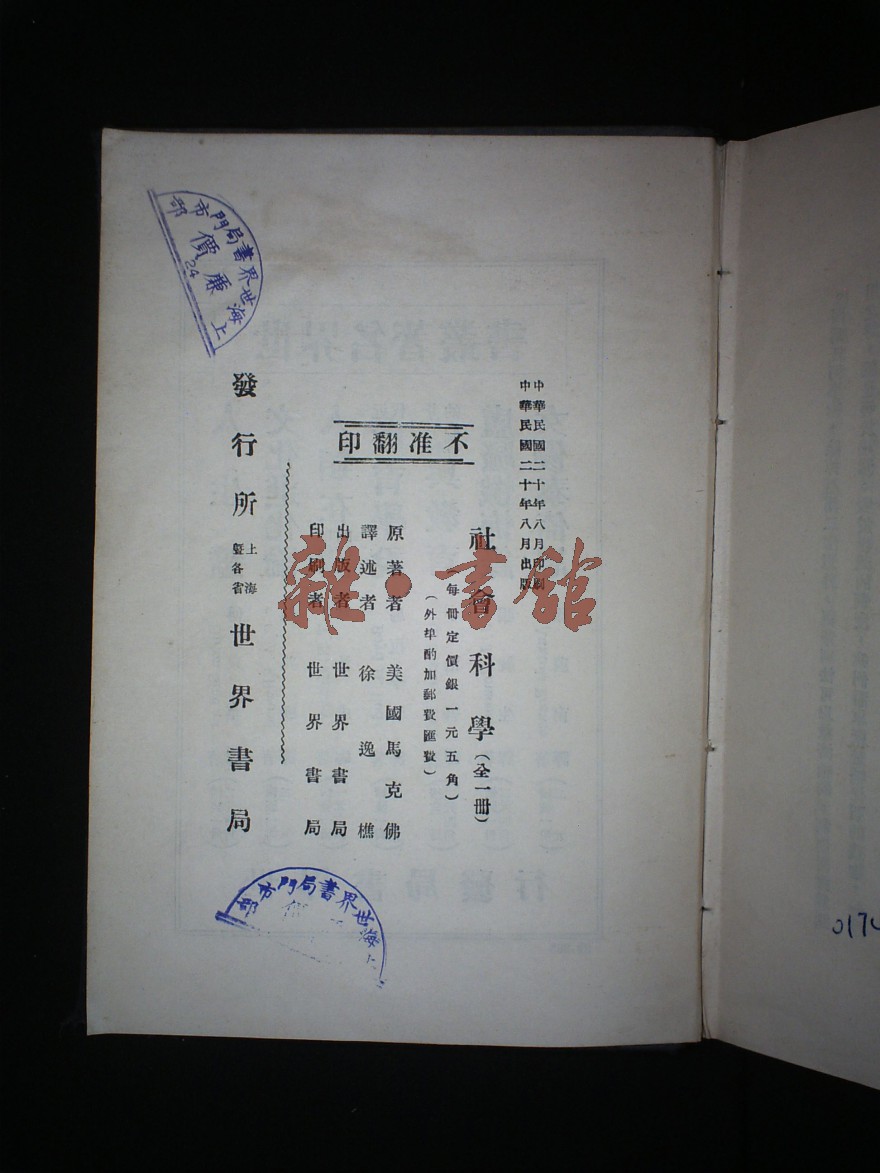 中華民國二十年八月印刷
中華民國二十年八月出版
不准翻印
社會科學(全一冊)
(每冊定價銀一元五角)
(外埠酌加郵費匯費)
原著者 美國馬克佛
譯述者 徐逸樵
出版者 世界書局
印刷者 世界書局
發行所 上海暨各省 世界書局
上海世界書局門市部
廉價
24
海世界書局門市部
雜·書館
世界名著叢書
017